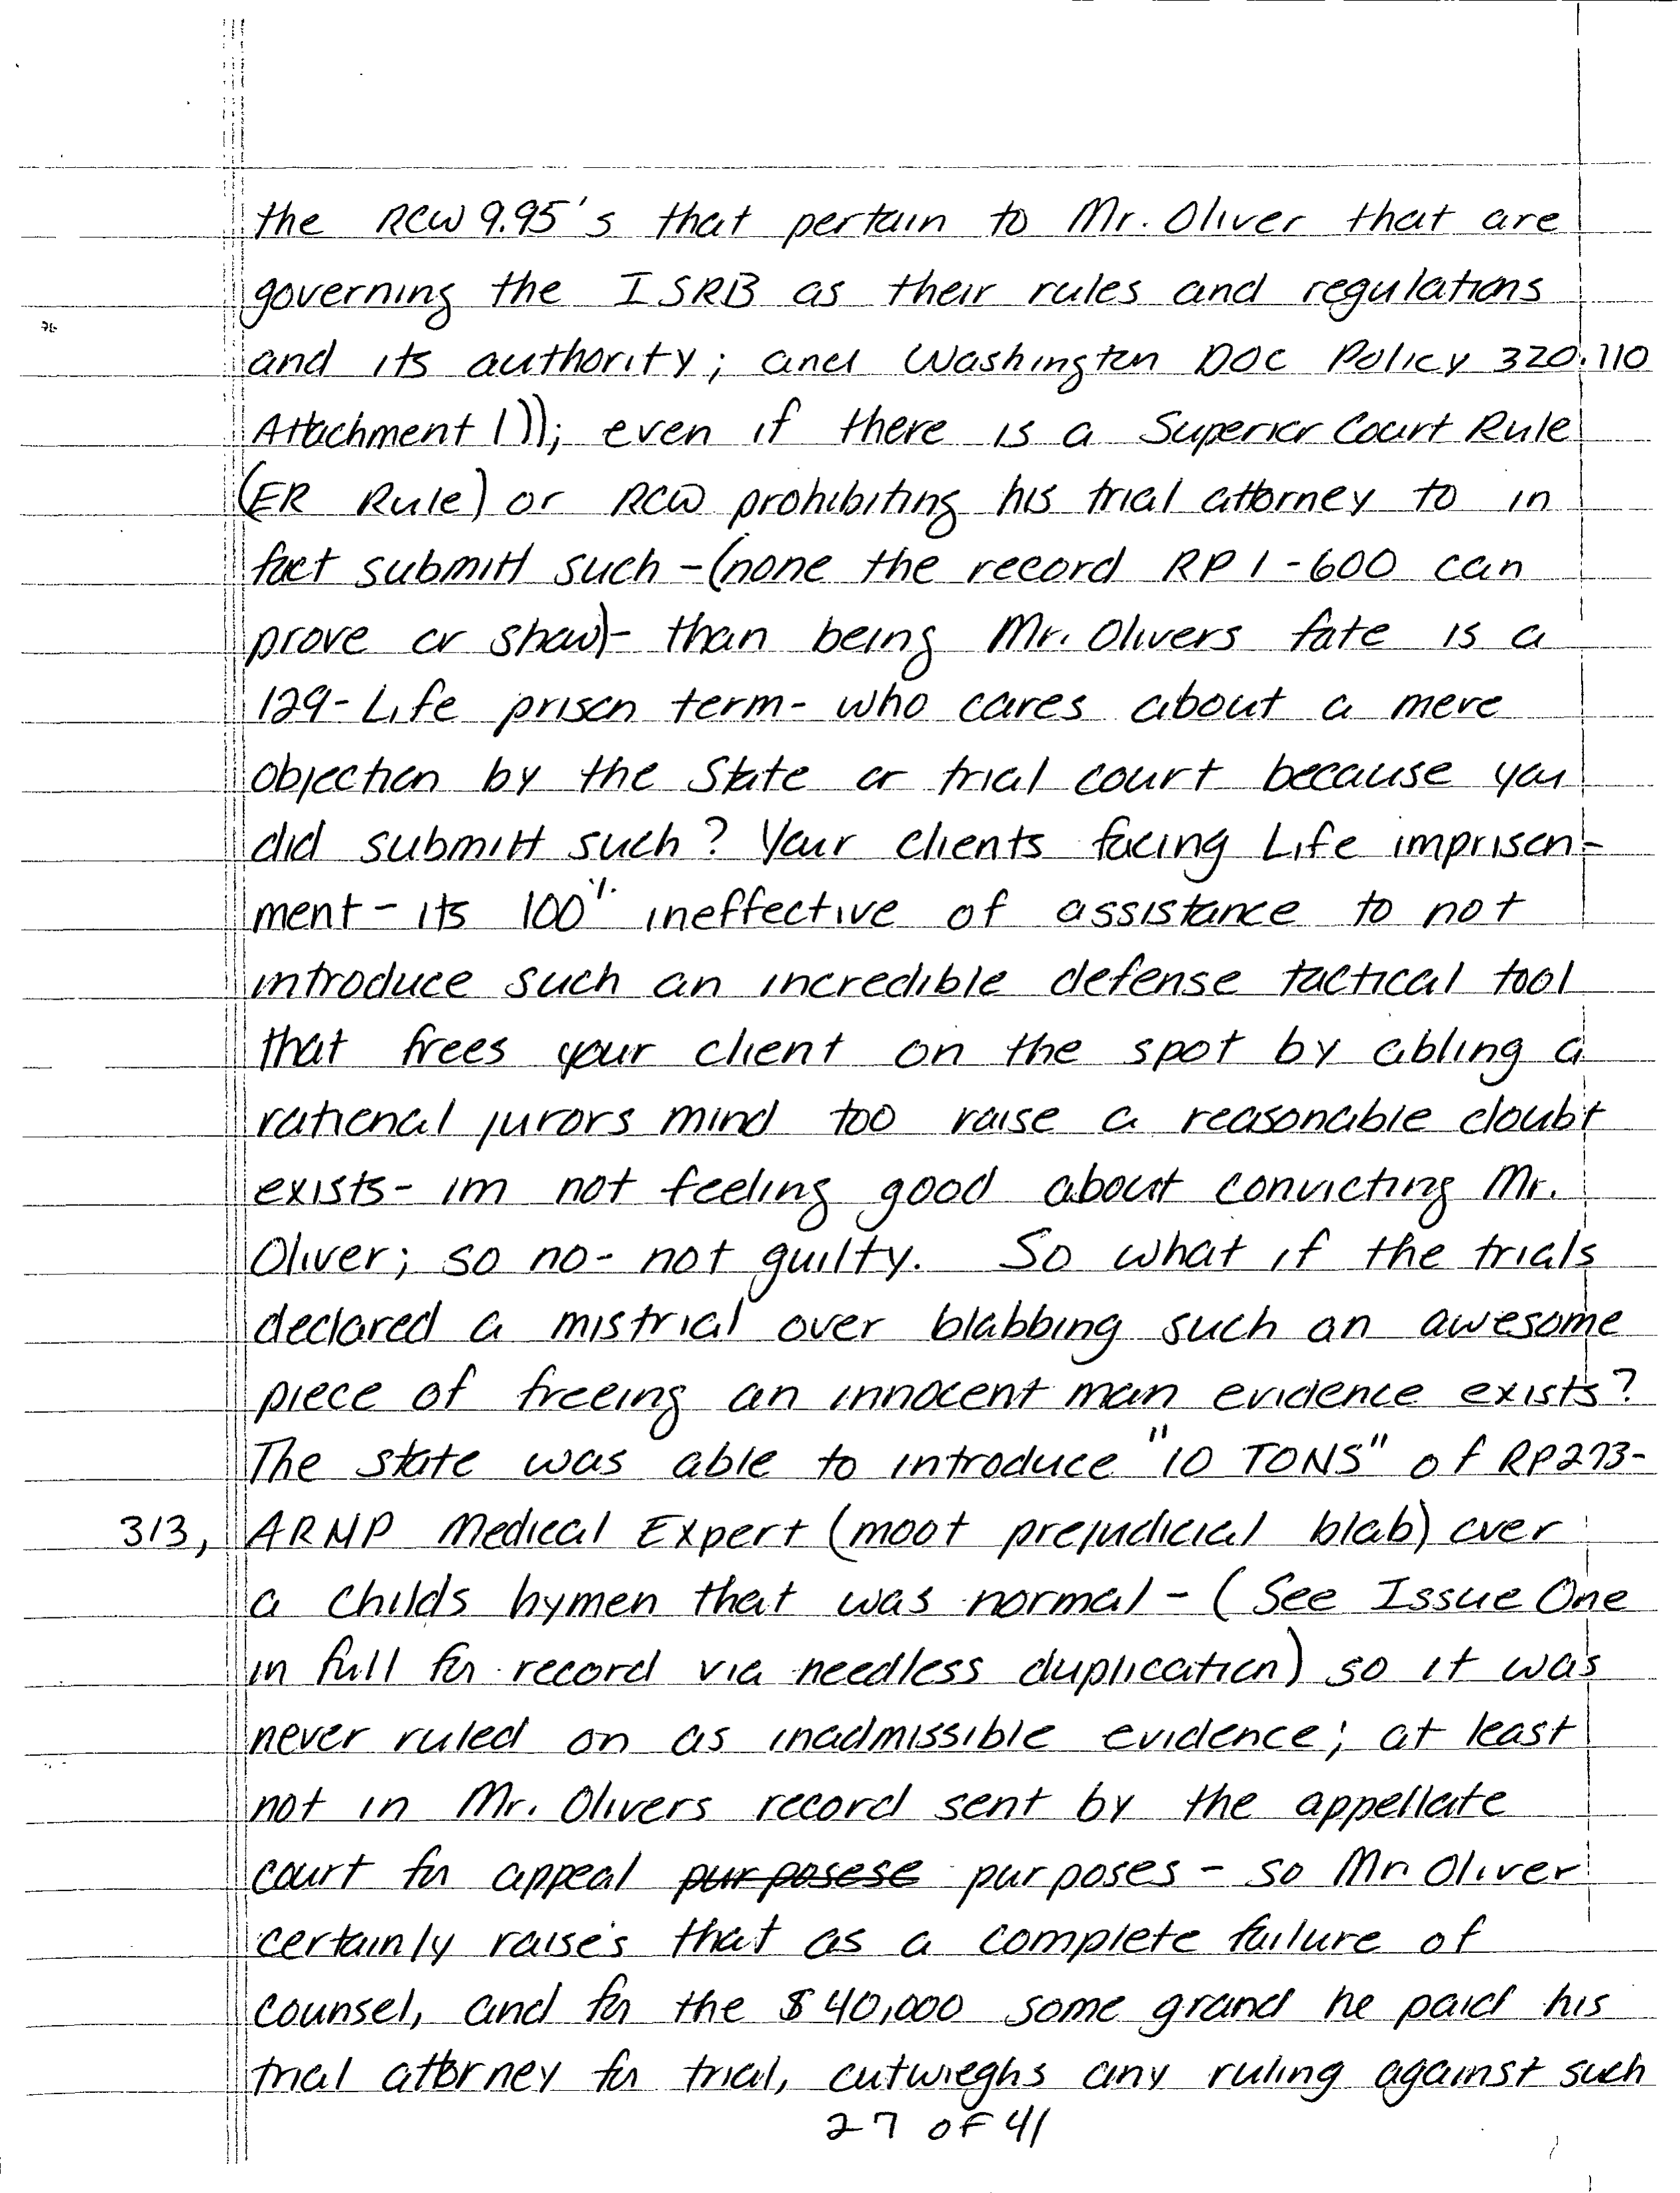 the RCW 9.95's that pertain to Mr. Oliver that are
governing the ISRB as their rules and regulations
and its authority; and Washington DOC Policy 320.110
Attachment 1)); even if there is a Superior Court Rule
(ER Rule) or RCW prohibiting his trial attorney to in
fact submitt such -(none the record RP 1-600 can
prove or show)- than being Mr. Olivers fate is a
129-Life prison term- who cares about a mere
objection by the State or trial court because you
did submitt such? Your clients facing Life imprison-
ment- its 100% ineffective of assistance to not
introduce such an incredible defense tactical tool
that frees your client on the spot by abling a
rational jurors mind too raise a reasonable doubt
exists- im not feeling good about convicting Mr.
Oliver; so no- not guilty. So what if the trials
declared a mistrial over blabbing such an awesome
piece of freeing an innocent man evidence exists?
The state was able to introduce "10 TONS" of RP273-
313, ARNP Medical Expert (moot prejudicial blab) over
a childs hymen that was normal - (See Issue One
in full for record via needless duplication) so it was
never ruled on as inadmissible evidence; at least
not in Mr. Olivers record sent by the appellate
court for appeal purposese purposes - so Mr. Oliver
certainly raises that as a complete failure of
counsel, and for the $40,000 some grand he paid his
trial attorney for trial, outwieghs any ruling against such
27 of 41